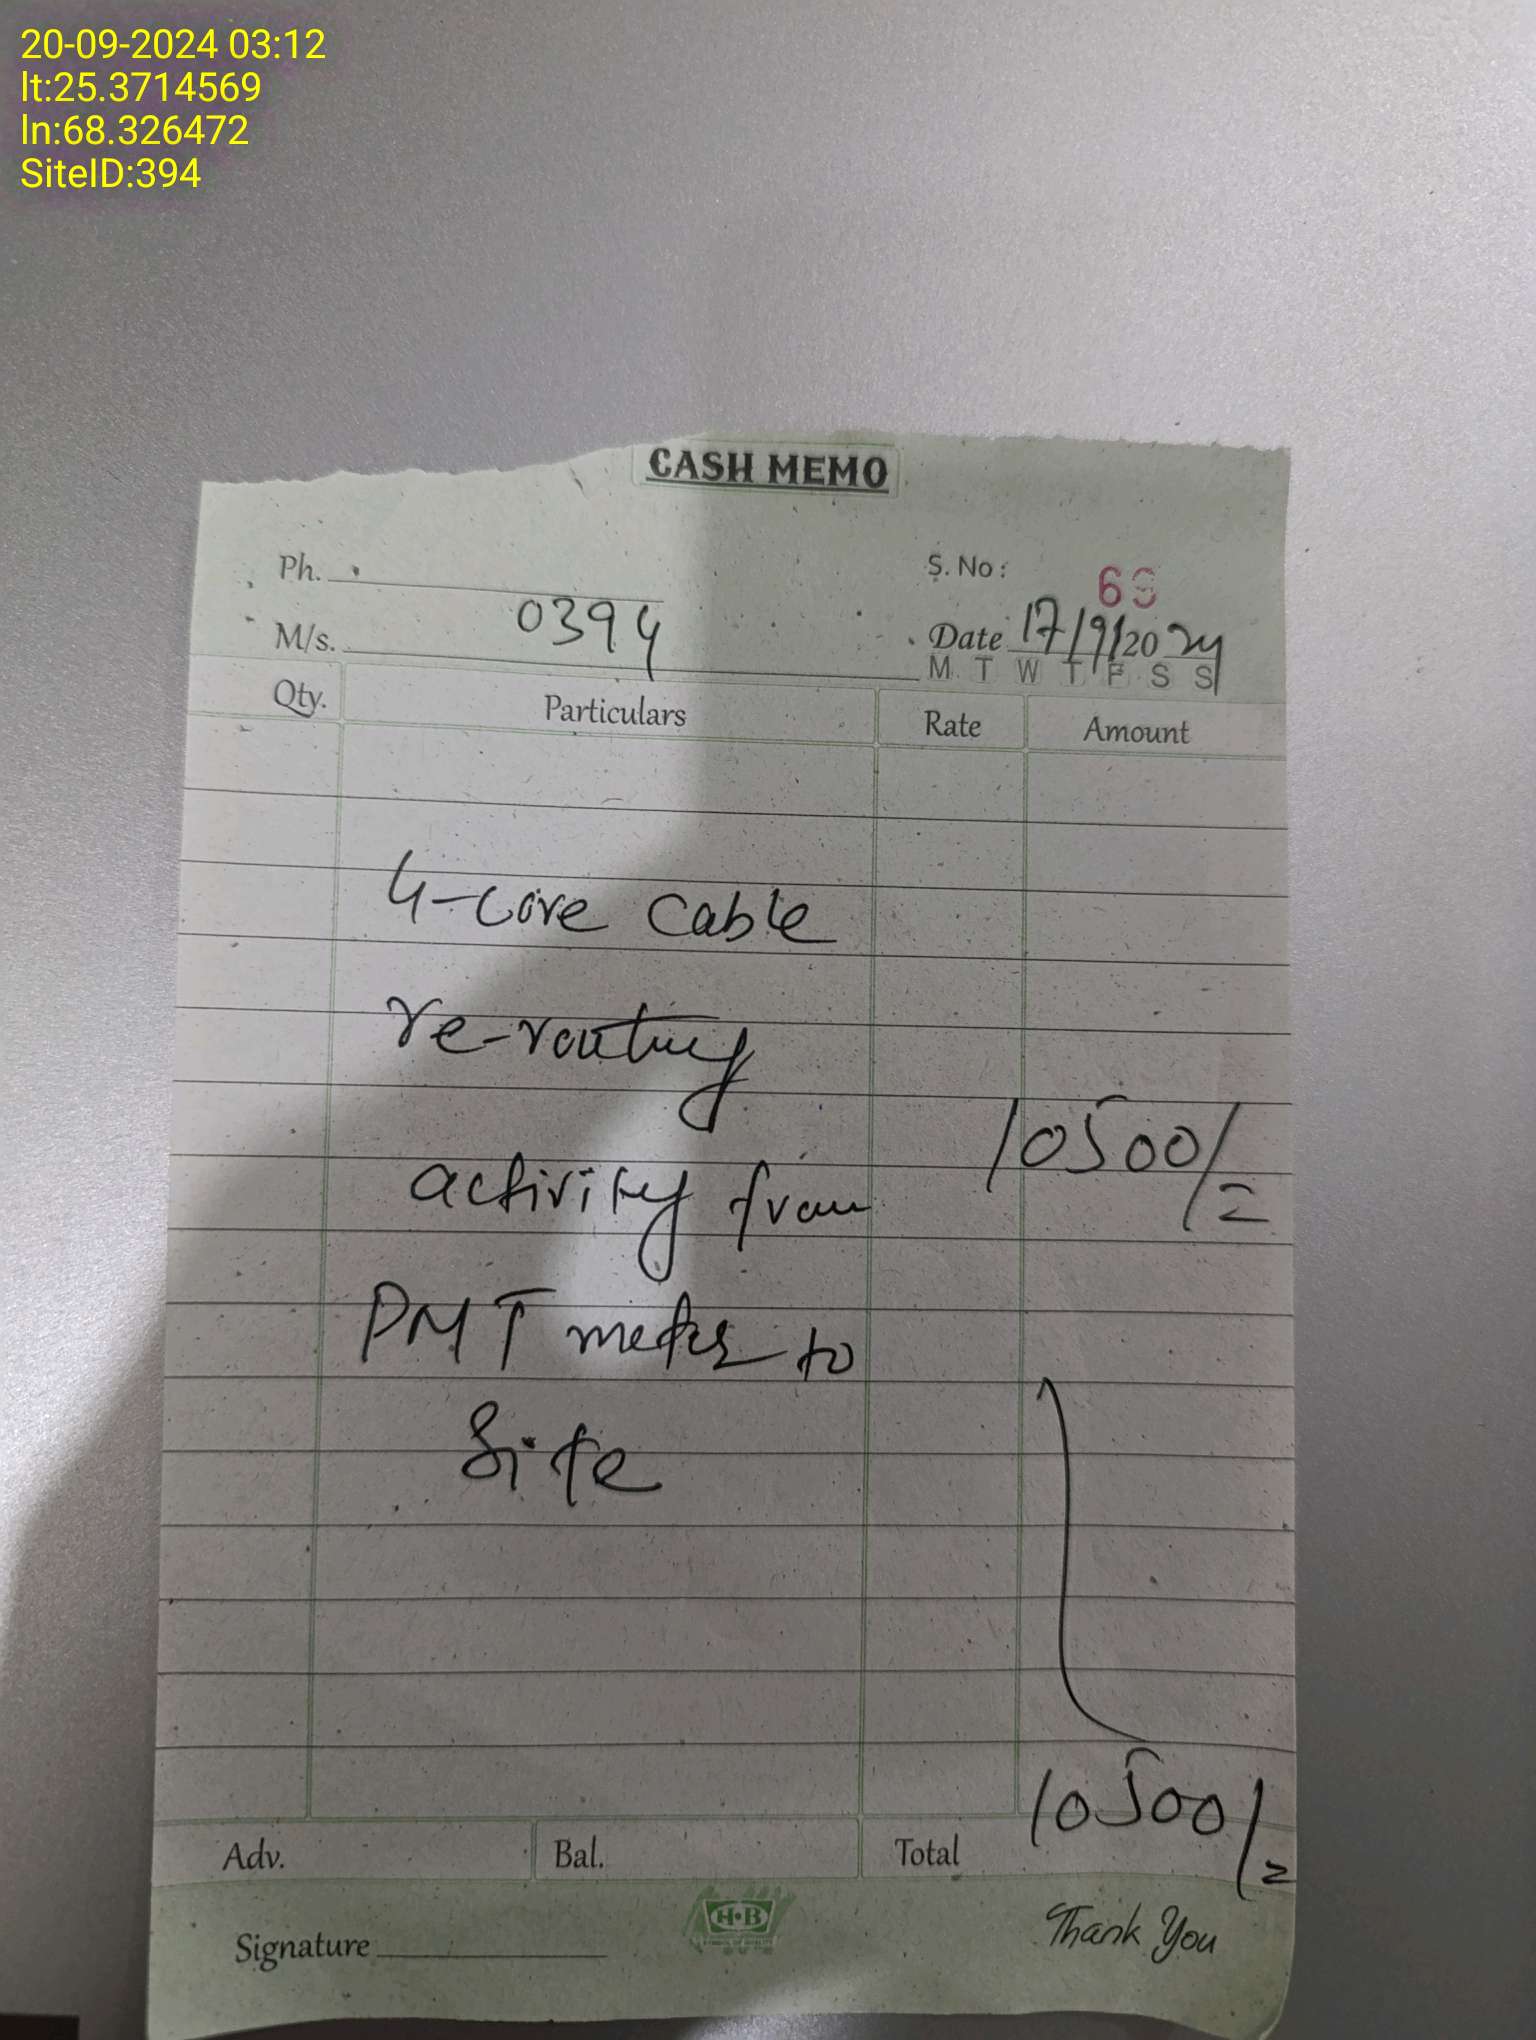 20-09-2024 03:12
lt:25.3714569
ln:68.326472
SiteID:394
CASH MEMO
Ph.
S. No: 69
M/s. 0394
Date 17/9/2024
M T W T F S S
Qty. Particulars Rate Amount
4-core cable
re-routing
activity from 10500/=
PMT meter to
Site
Adv. Bal. Total 10500/=
H·B
Signature
Thank You